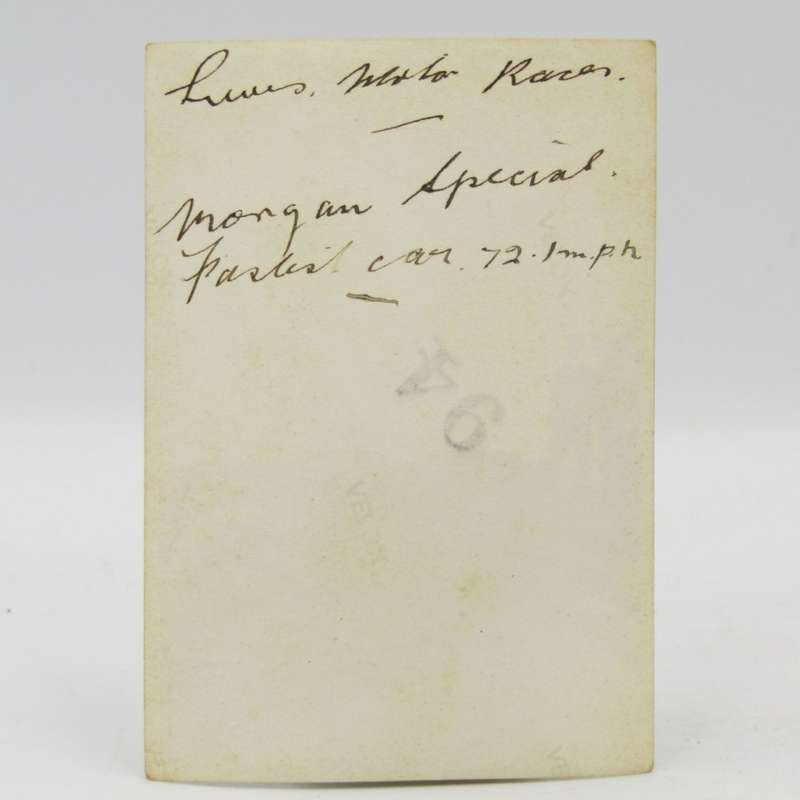 Lewes. Motor Races.
Morgan Special.
Fastest car. 72.1 m.p.h
46